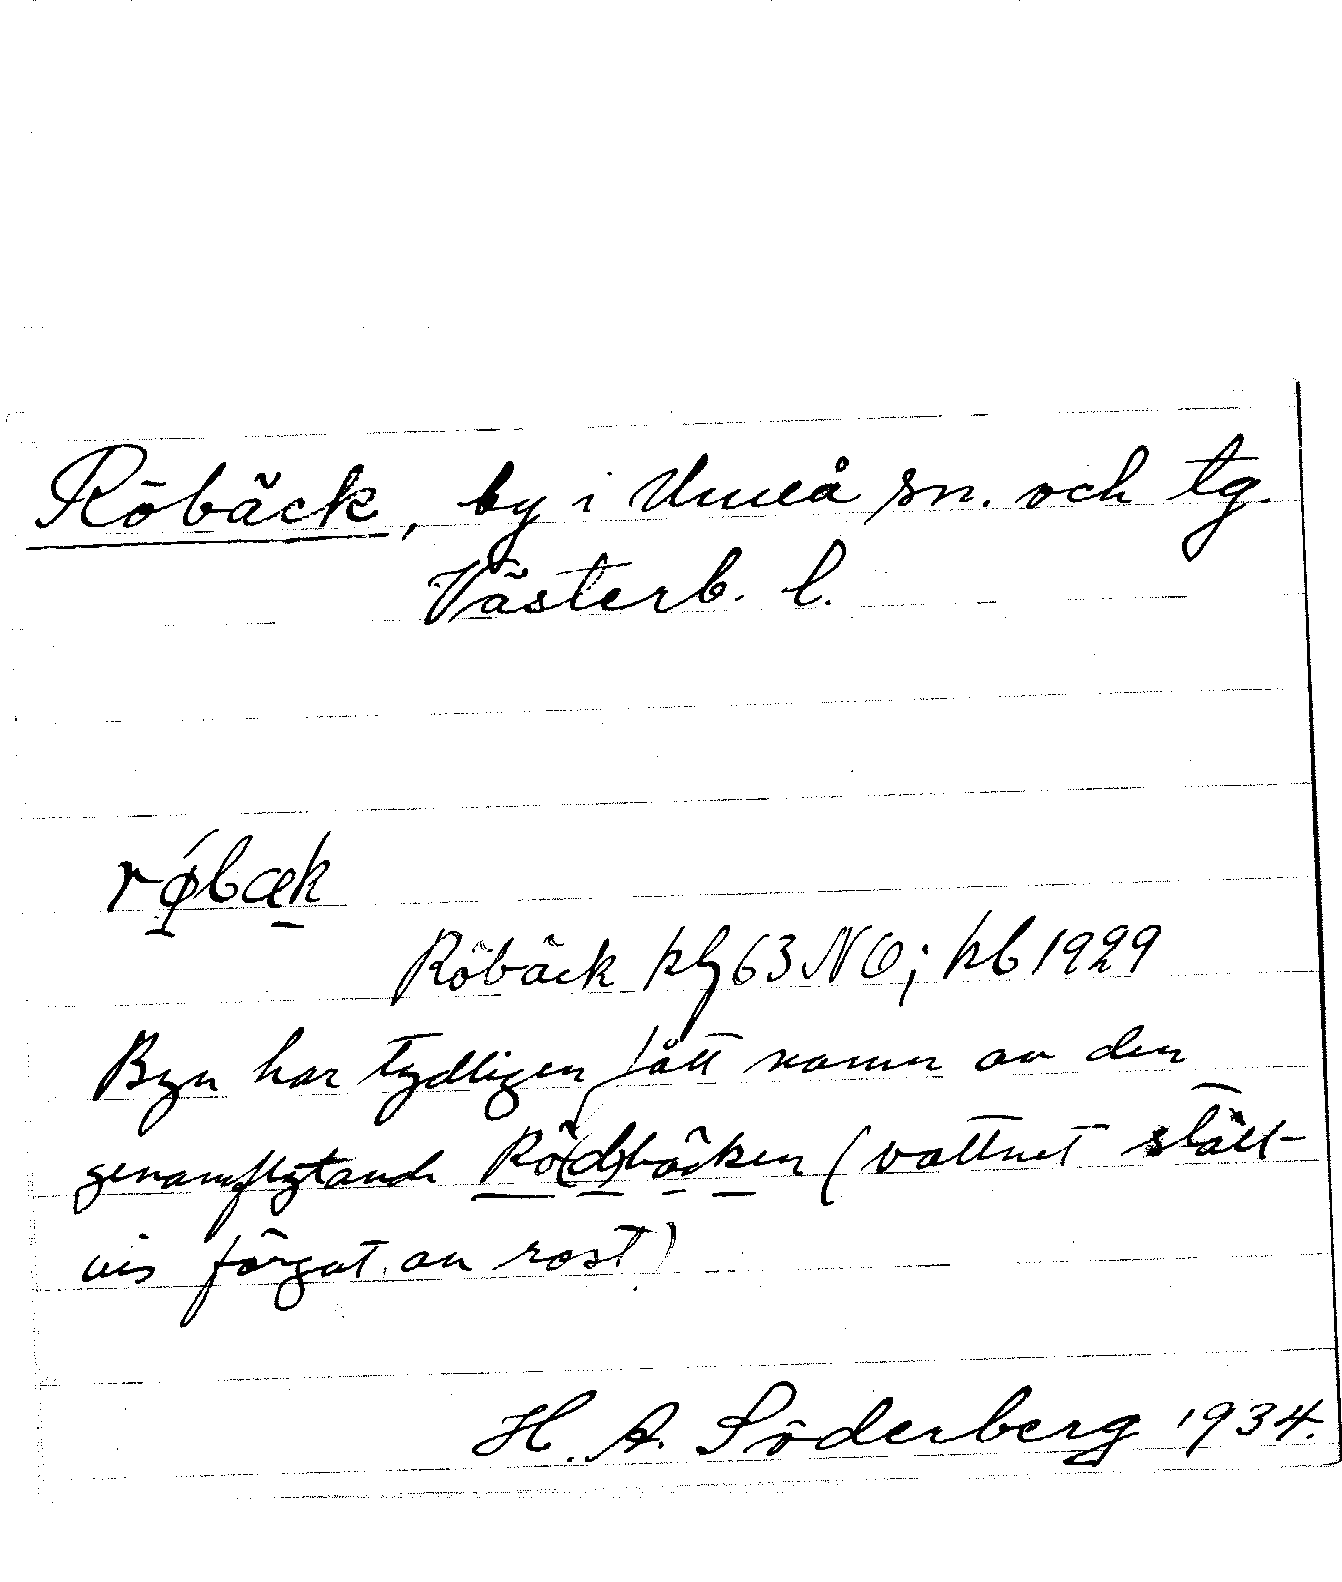 Röbäck, by i Umeå sn. och tg.
Västerb. l.
rǿbæk
Röbäck kbl 63 NO; kb 1929
Byn har tydligen fått namn av den
genomflytande Rö(d)bäcken (vattnet ställ-
vis färgat av rost)
H. A. Söderberg 1934.